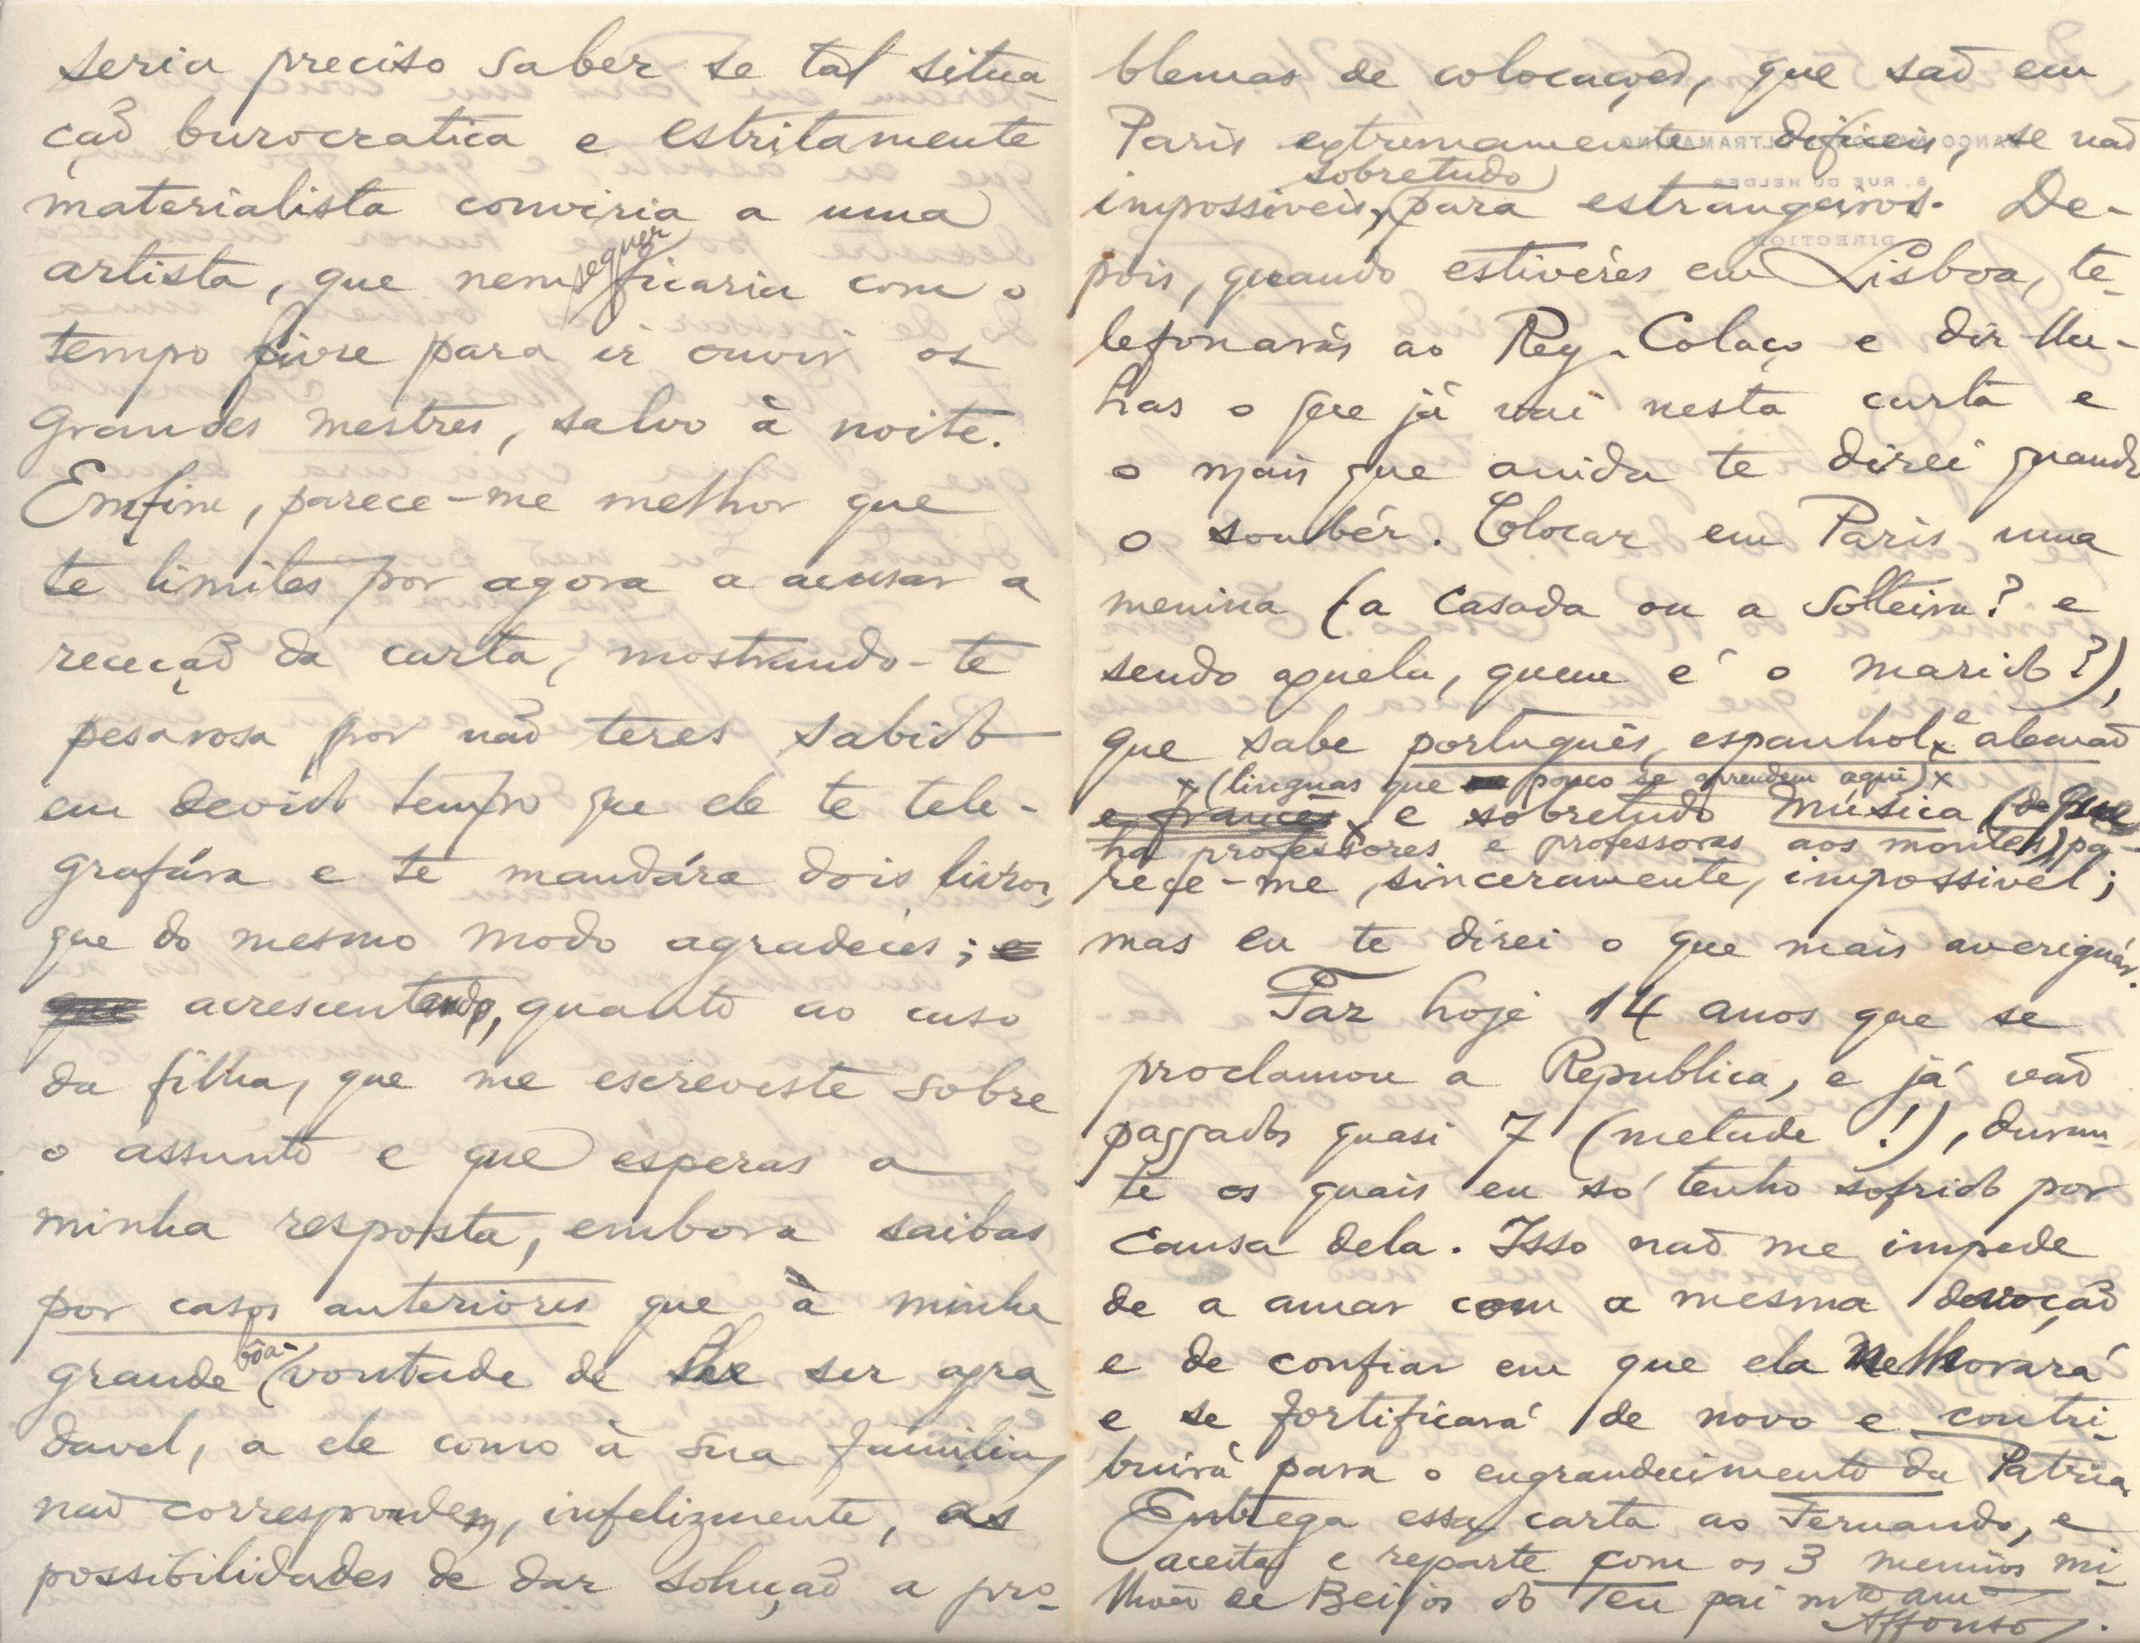 seria preciso saber se tal situa-
ção burocratica e estritamente
materialista conviria a uma
artista, que nem sequer ficaria com o
tempo livre para ir ouvir os
grandes mestres, salvo à noite.
Emfim, parece-me melhor que
te limites por agora a acusar a
receção da carta, mostrando-te
pesarosa por não teres sabido
em devido tempo que ele te tele-
grafára e te mandára dois livros,
que do mesmo modo agradeces; e
que acrescentando, quanto ao caso
da filha, que me escreveste sobre
o assunto e que esperas a
minha resposta, embora saibas
por casos anteriores que à minha
grande bôa-vontade de lhe ser agra-
davel, a ele como à sua familia,
não correspondem, infelizmente, as
possibilidades de dar solução a pro-
blemas de colocações, que são em
Paris extremamente dificeis, se não
impossiveis, sobretudo para estrangeiros. De-
pois, quando estivéres em Lisboa, te-
lefonarás ao Rey-Colaço e dir-lhe-
has o que já vai nesta carta e
o mais que ainda te direi quando
o soubér. Colocar em Paris uma
menina (a casada ou a solteira? e
sendo aquela, quem é o marido?),
que sabe português, espanhol e alemão
(linguas que pouco se aprendem aqui)
e francês e sobretudo música (de que
ha professores e professoras aos montes), pa-
rece-me, sinceramente, impossivel;
mas eu te direi o que mais averiguár.
Faz hoje 14 anos que se
proclamou a Republica, e já vão
passados quasi 7 (metade!), duran-
te os quais eu só tenho sofrido por
causa dela. Isso não me impede
de a amar com a mesma devoção
e de confiar em que ela melhorará
e se fortificará de novo e contri-
buirá para o engrandecimento da Patria.
Entrega essa carta ao Fernando, e
aceita e reparte com os 3 meninos mi-
lhão de Beijos do Teu pai mto amo
Affonso.